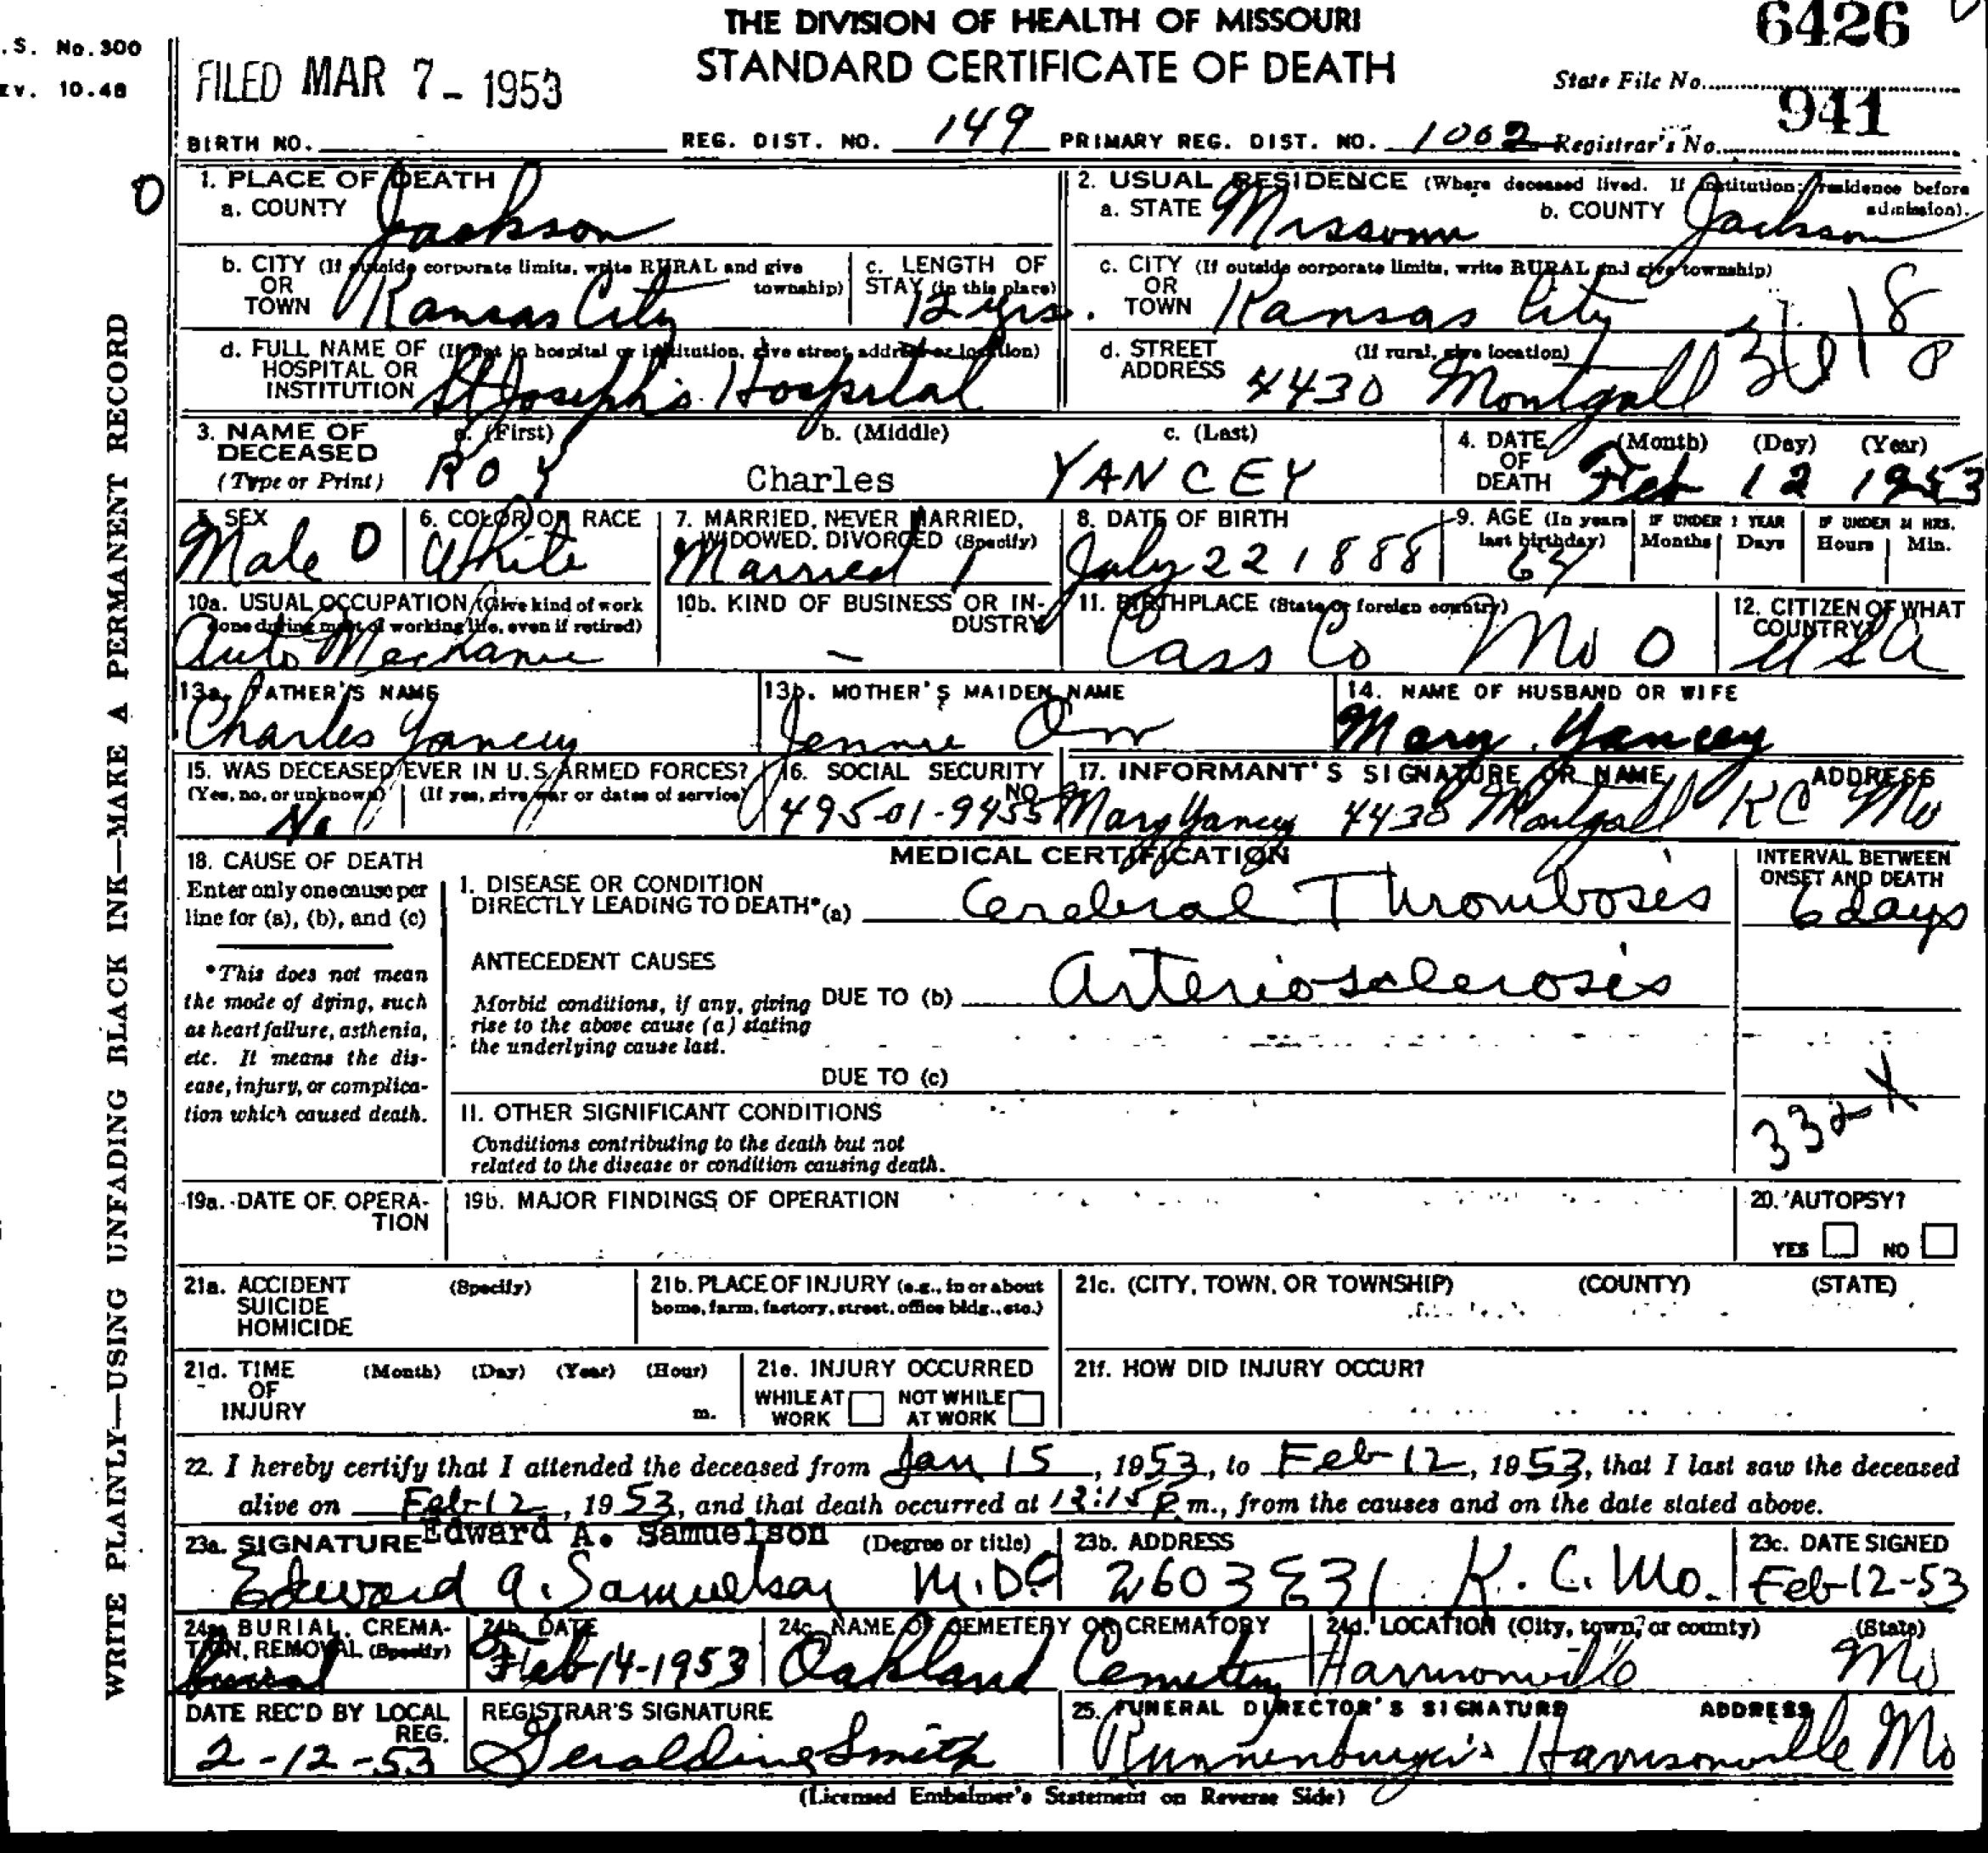 THE DIVISION OF HEALTH OF MISSOURI
STANDARD CERTIFICATE OF DEATH
6426
.S. No. 300
EV. 10.48
FILED MAR 7- 1953
State File No.
941
BIRTH NO. - REG. DIST. NO. 149 PRIMARY REG. DIST. NO. 1002 Registrar's No.
WRITE PLAINLY—USING UNFADING BLACK INK—MAKE A PERMANENT RECORD
0
1. PLACE OF DEATH
a. COUNTY Jackson
2. USUAL RESIDENCE (Where deceased lived. If institution: residence before admission).
a. STATE Missouri b. COUNTY Jackson
b. CITY (If outside corporate limits, write RURAL and give township)
OR
TOWN Kansas City
c. LENGTH OF
STAY (in this place)
12 yrs.
c. CITY (If outside corporate limits, write RURAL and give township)
OR
TOWN Kansas City
d. FULL NAME OF (If not in hospital or institution, give street address or location)
HOSPITAL OR
INSTITUTION St Joseph's Hospital
d. STREET (If rural, give location)
ADDRESS 4430 Montgall
3. NAME OF DECEASED
(Type or Print)
a. (First) b. (Middle) c. (Last)
ROY Charles YANCEY
4. DATE OF DEATH (Month) (Day) (Year)
Feb 12 1953
5. SEX
Male 0
6. COLOR OR RACE
White
7. MARRIED, NEVER MARRIED,
WIDOWED, DIVORCED (Specify)
Married 1
8. DATE OF BIRTH
July 22 1888
9. AGE (In years last birthday)
64
IF UNDER 1 YEAR
Months Days
IF UNDER 24 HRS.
Hours Min.
10a. USUAL OCCUPATION (Give kind of work done during most of working life, even if retired)
Auto Mechanic
10b. KIND OF BUSINESS OR INDUSTRY
—
11. BIRTHPLACE (State or foreign country)
Cass Co Mo 0
12. CITIZEN OF WHAT COUNTRY?
USA
13a. FATHER'S NAME
Charles Yancey
13b. MOTHER'S MAIDEN NAME
Jennie Orr
14. NAME OF HUSBAND OR WIFE
Mary Yancey
15. WAS DECEASED EVER IN U.S. ARMED FORCES?
(Yes, no, or unknown) (If yes, give war or dates of service)
No
16. SOCIAL SECURITY NO.
495-01-9455
17. INFORMANT'S SIGNATURE OR NAME ADDRESS
Mary Yancey 4430 Montgall KC Mo
18. CAUSE OF DEATH
Enter only one cause per
line for (a), (b), and (c)
*This does not mean
the mode of dying, such
as heart failure, asthenia,
etc. It means the dis-
ease, injury, or complica-
tion which caused death.
MEDICAL CERTIFICATION
INTERVAL BETWEEN
ONSET AND DEATH
I. DISEASE OR CONDITION
DIRECTLY LEADING TO DEATH* (a) Cerebral Thrombosis 6 days
ANTECEDENT CAUSES
Morbid conditions, if any, giving
rise to the above cause (a) stating
the underlying cause last.
DUE TO (b) Arteriosclerosis
DUE TO (c)
332X
II. OTHER SIGNIFICANT CONDITIONS
Conditions contributing to the death but not
related to the disease or condition causing death.
19a. DATE OF OPERA-
TION
19b. MAJOR FINDINGS OF OPERATION
20. AUTOPSY?
YES NO
21a. ACCIDENT
SUICIDE
HOMICIDE
(Specify)
21b. PLACE OF INJURY (e.g., in or about
home, farm, factory, street, office bldg., etc.)
21c. (CITY, TOWN, OR TOWNSHIP) (COUNTY) (STATE)
21d. TIME OF INJURY (Month) (Day) (Year) (Hour) m.
21e. INJURY OCCURRED
WHILE AT WORK NOT WHILE AT WORK
21f. HOW DID INJURY OCCUR?
22. I hereby certify that I attended the deceased from Jan 15, 1953, to Feb-12, 1953, that I last saw the deceased
alive on Feb-12, 1953, and that death occurred at 12:15 P m., from the causes and on the date stated above.
23a. SIGNATURE Edward A. Samuelson (Degree or title)
Edward A. Samuelson M.D.
23b. ADDRESS
2603 E 31 K. C. Mo.
23c. DATE SIGNED
Feb-12-53
24a. BURIAL, CREMA-
TION, REMOVAL (Specify)
burial
24b. DATE
Feb 14-1953
24c. NAME OF CEMETERY OR CREMATORY
Oakland Cemetery
24d. LOCATION (City, town, or county) (State)
Harrisonville Mo
DATE REC'D BY LOCAL REG.
2-12-53
REGISTRAR'S SIGNATURE
Geraldine Smith
25. FUNERAL DIRECTOR'S SIGNATURE ADDRESS
Runnenburger's Harrisonville Mo
(Licensed Embalmer's Statement on Reverse Side)